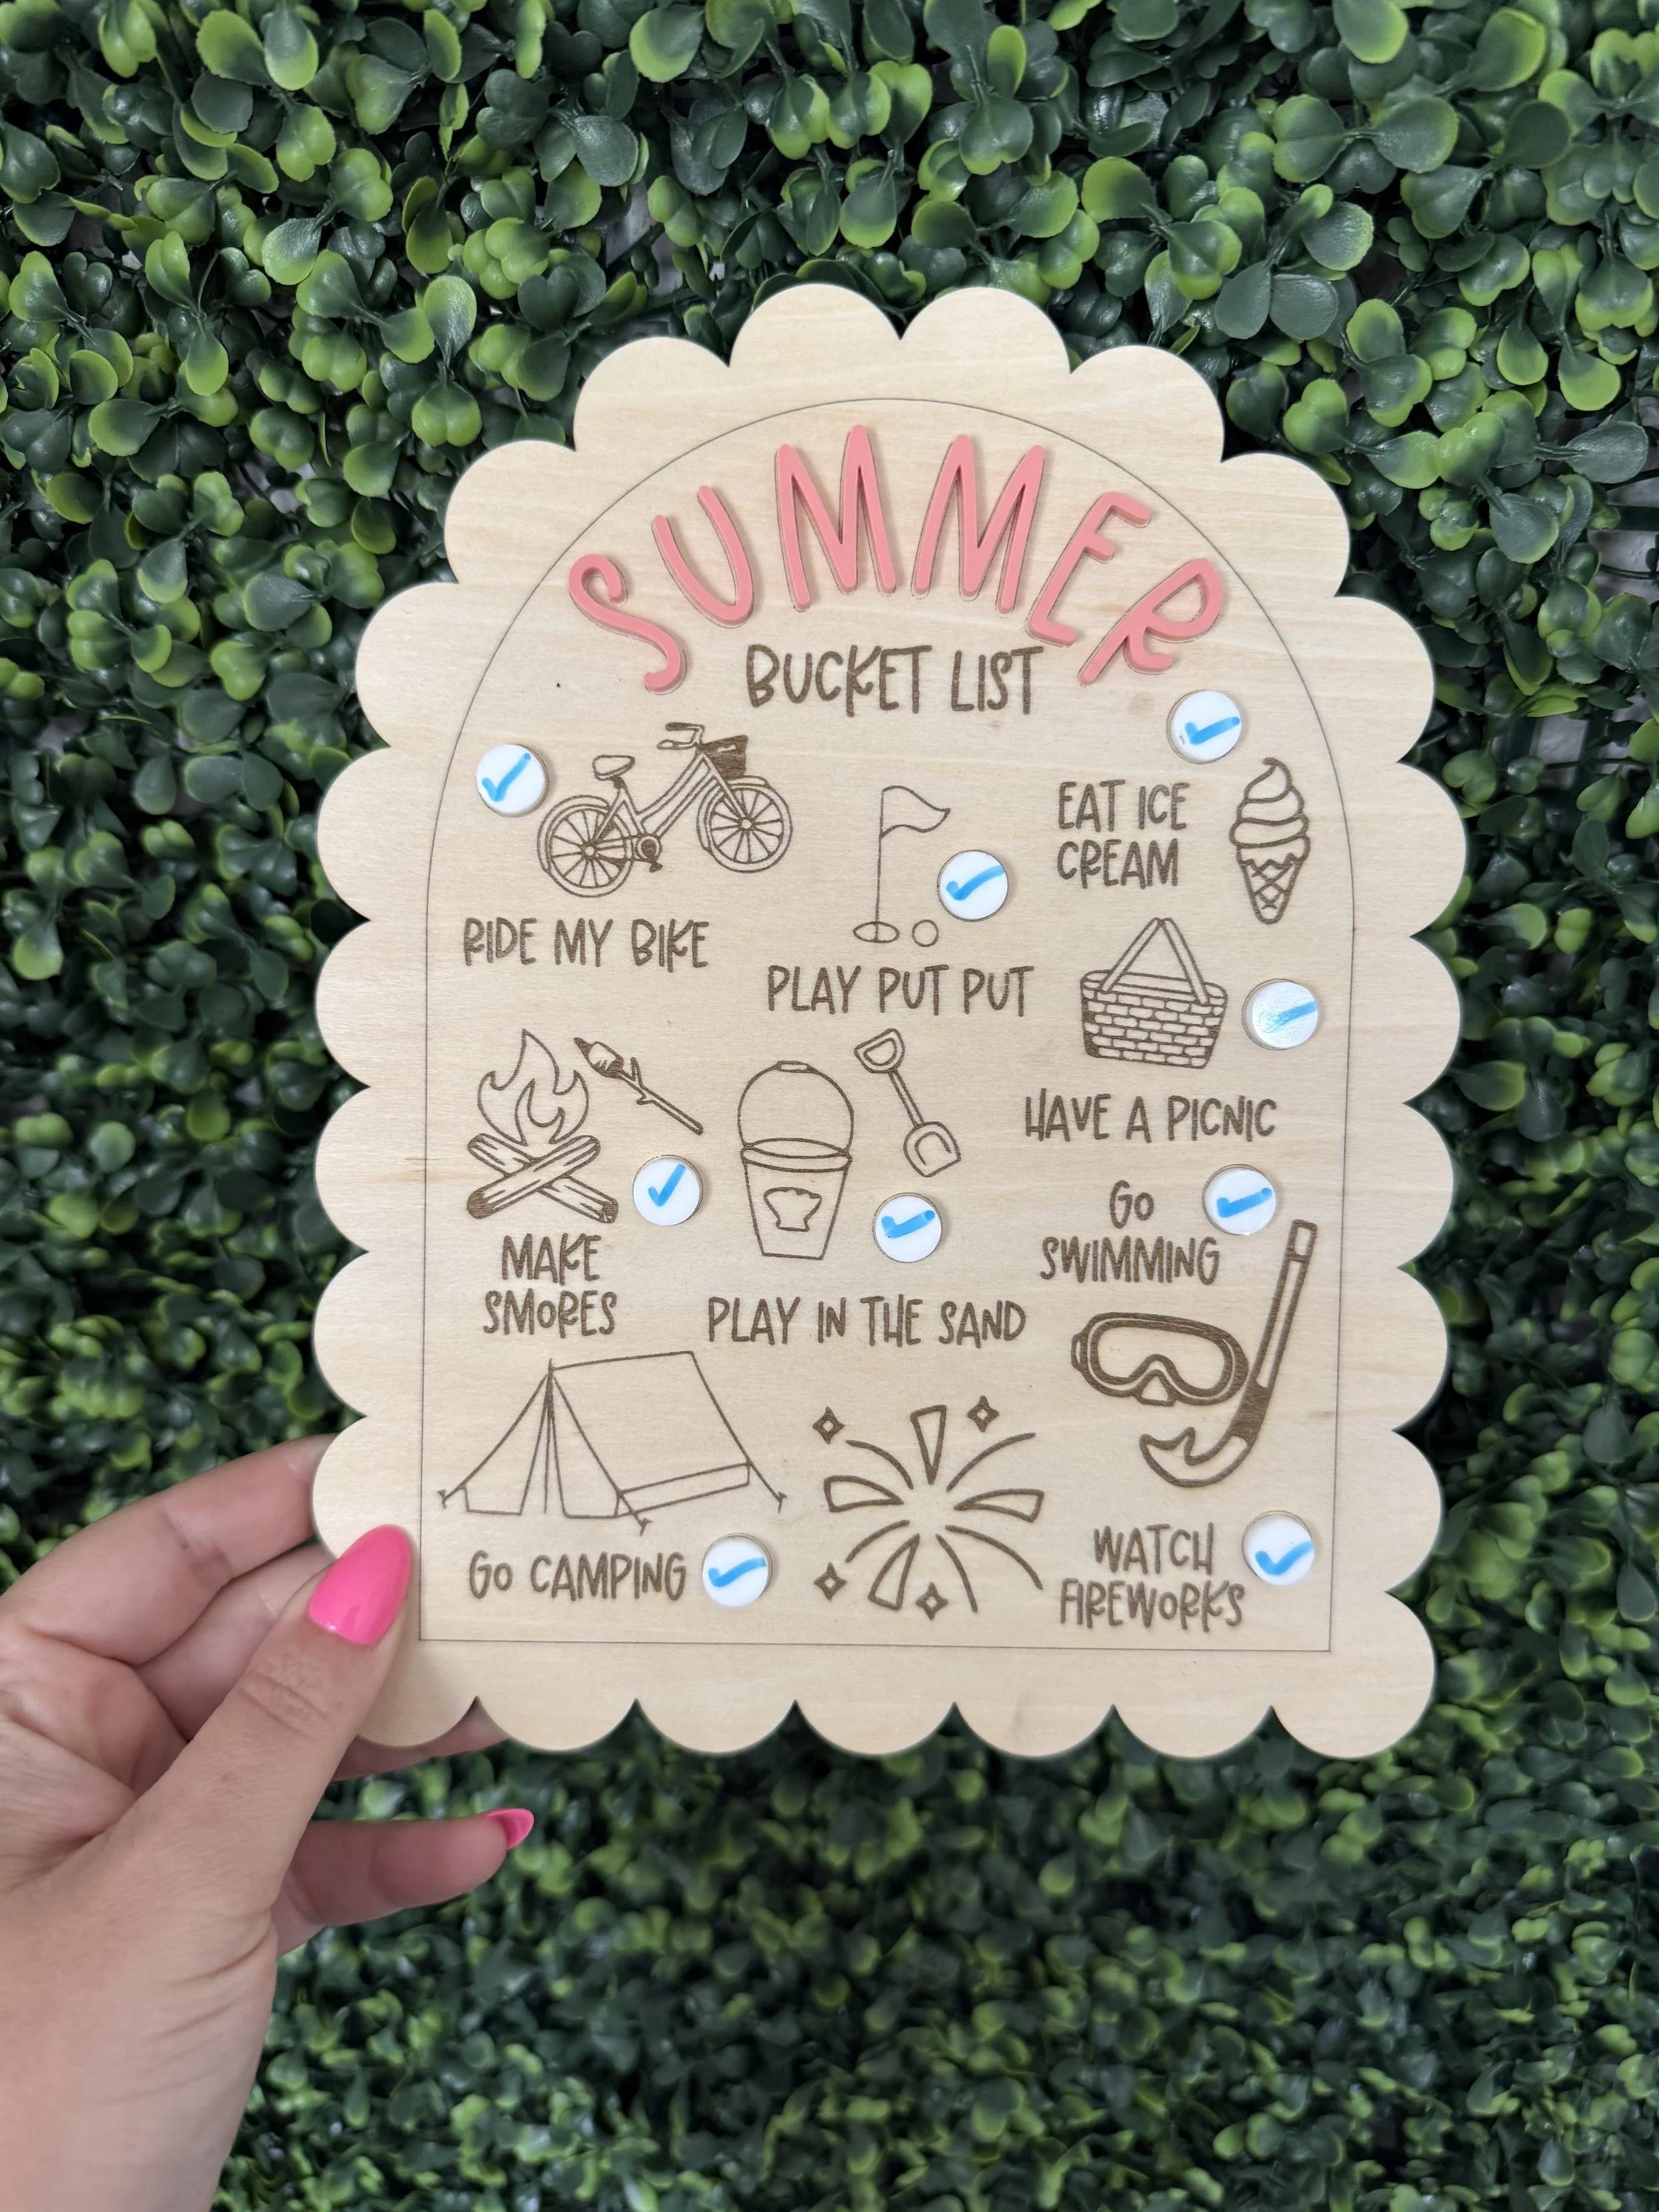 SUMMER
BUCKET LIST
EAT ICE
CREAM
RIDE MY BIKE
PLAY PUT PUT
HAVE A PICNIC
MAKE
SMORES
PLAY IN THE SAND
GO
SWIMMING
GO CAMPING
WATCH
FIREWORKS